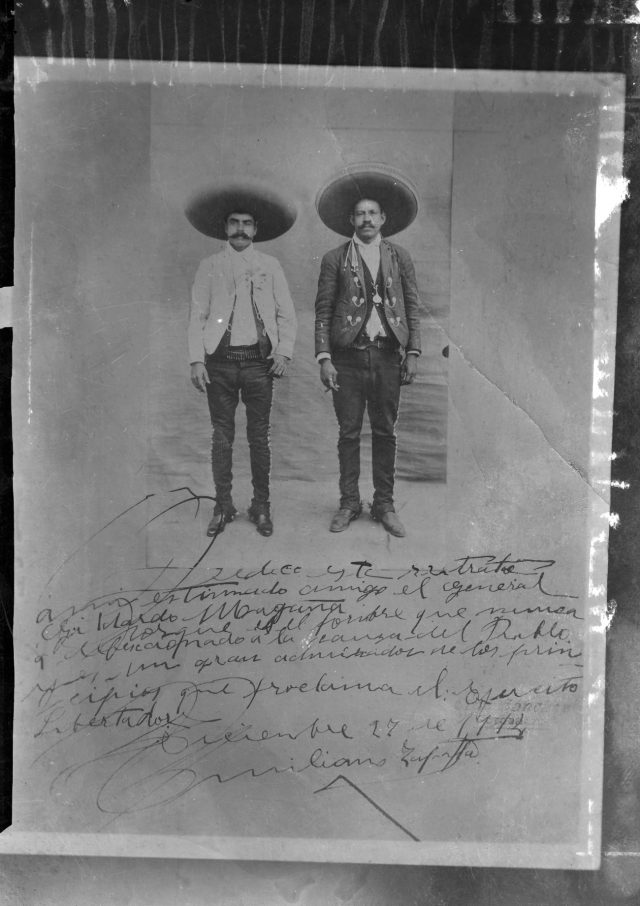 Dedico este retrato
a mi estimado amigo el General
Gildardo Magaña
Porque es el hombre que nunca
a a la causa del Pueblo.
y es un gran admirador de los prin-
cipios que proclama el Ejercito
Libertador
Diciembre 27 de
Emiliano Zapata